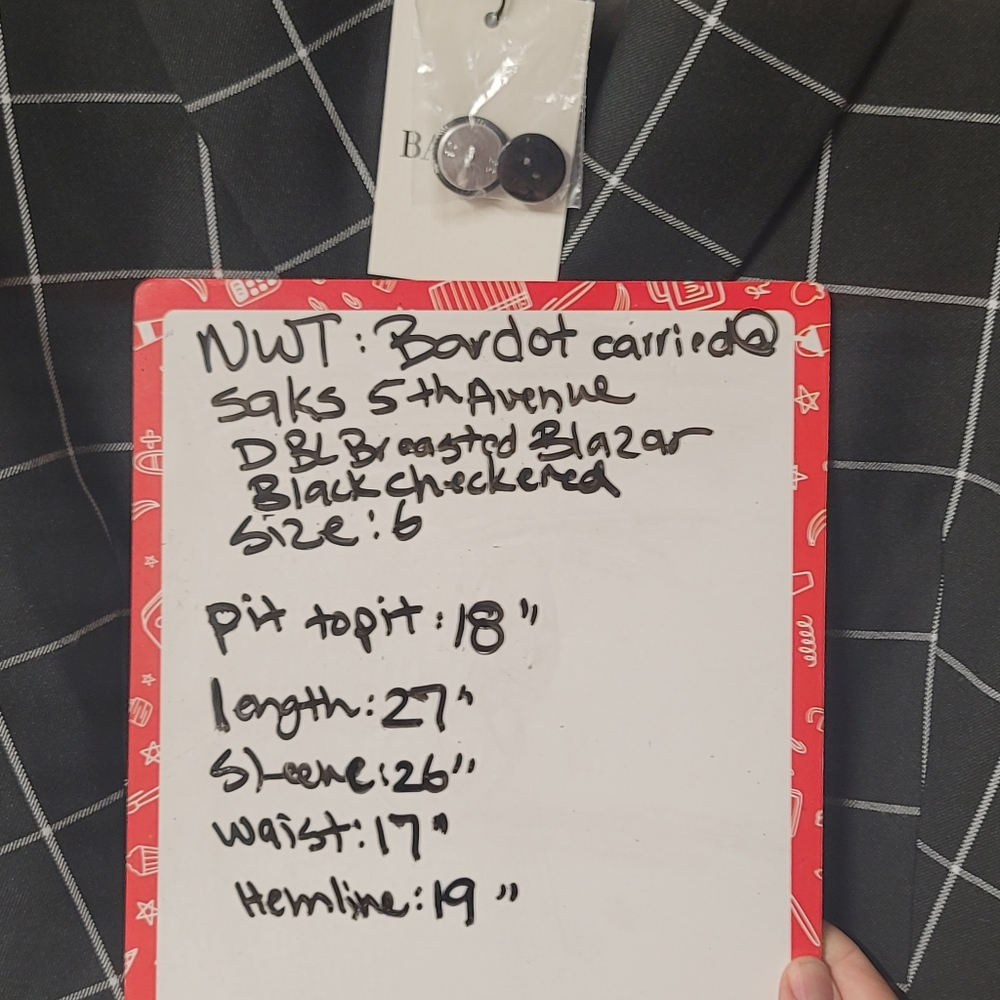 BA
NWT: Bardot carried@
Saks 5th Avenue
DBL Breasted Blazer
Black checkered
Size: 6
pit to pit: 18"
length: 27"
Sleeve: 26"
waist: 17"
Hemline: 19"